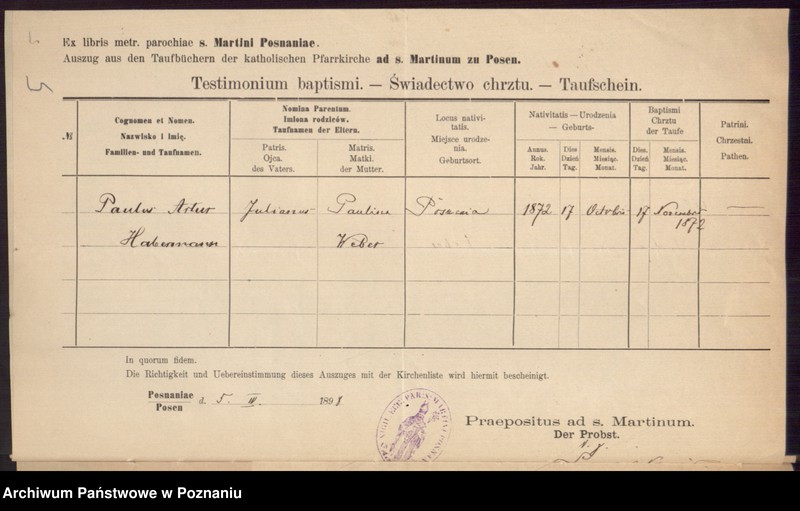 Ex libris metr. parochiae s. Martini Posnaniae.
Auszug aus den Taufbüchern der katholischen Pfarrkirche ad s. Martinum zu Posen.
Testimonium baptismi. — Świadectwo chrztu. — Taufschein.
№
Cognomen et Nomen.
Nazwisko i imię.
Familien- und Taufnamen.
Nomina Parentum.
Imiona rodziców.
Taufnamen der Eltern.
Patris.
Ojca.
des Vaters.
Matris.
Matki.
der Mutter.
Locus nativi-
tatis.
Miejsce urodze-
nia.
Geburtsort.
Nativitatis — Urodzenia
— Geburts-
Annus.
Rok.
Jahr.
Dies
Dzień
Tag.
Mensis.
Miesiąc.
Monat.
Baptismi
Chrztu
der Taufe
Dies.
Dzień
Tag.
Mensis.
Miesiąc.
Monat.
Patrini.
Chrzestni.
Pathen.
Paulus Artur Julianus Pauline Posnania 1872 17 Octobris 17 November
Habermann Weber 1872
In quorum fidem.
Die Richtigkeit und Uebereinstimmung dieses Auszuges mit der Kirchenliste wird hiermit bescheinigt.
Posnaniae
Posen
d. 5. III. 1898
Praepositus ad s. Martinum.
Der Probst.
Archiwum Państwowe w Poznaniu